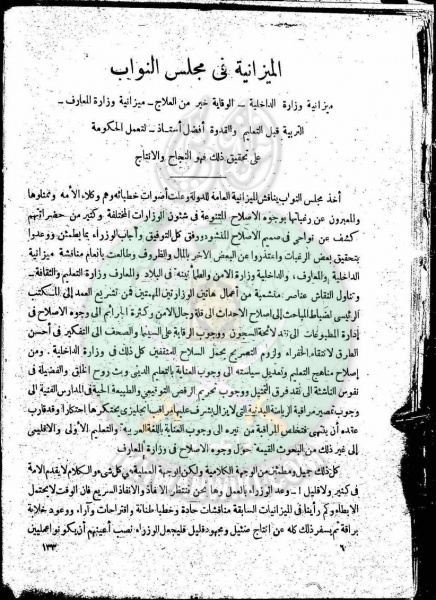 الميزانية فى مجلس النواب
ميزانية وزارة الداخلية – الوقاية خير من العلاج – ميزانية وزارة المعارف –
التربية قبل التعليم والقدوة أفضل أستاذ – لتعمل الحكومة
على تحقيق ذلك فهو النجاح والانتاج
أخذ مجلس النواب يناقش الميزانية العامة للدولة وعلت أصوات خطبائه وهم وكلاء الأمة وممثلوها
والمعبرون عن رغباتها بوجوه الاصلاح المتنوعة فى شئون الوزارات المختلفة وكثير من حضراتهم
كشف عن نواحى فى صميم الاصلاح المنشود ووفق كل التوفيق وأجاب الوزراء بما يطمئن ووعدوا
بتحقيق بعض الرغبات واعتذروا عن البعض الآخر بالمال والظروف وطالعت بانعام مناقشة ميزانية
الداخلية والمعارف، والداخلية وزارة الامن والطمأنينة فى البلاد والمعارف وزارة التعليم والثقافة –
وتناول النقاش عناصر متشعبة من أعمال هاتين الوزارتين المهمتين فمن تشريع العمد إلى المكتب
الرئيسى لضباط المباحث إلى إصلاح الاحداث الى قلة رجال الامن وكثرة الجرائم الى وجوه الاصلاح فى
إدارة المطبوعات الى لائحة السجون ووجوب الرقابة على السينما والصحف الى التفكير فى أحسن
الطرق لانتقاء الخفراء ولزوم التصريح بحمل السلاح للمثقفين كل ذلك فى وزارة الداخلية . ومن
إصلاح مناهج التعليم وتعديل سياسته الى وجوب العناية بالتعليم الدينى وبث روح الخلق والفضيلة فى
نفوس الناشئة الى نقد فرق التمثيل ووجوب تحريم الرقص التوقيعى والطبيعة الحية فى المدارس الفنية الى
وجوب تمصير مراقبة الرياضة البدنية التى لا يزال يشرف عليها مراقب انجليزى يحتكرها احتكارا وقد قارب
عقده أن ينتهى فتخلص المراقبة من نيره الى وجوب العناية باللغة العربية والتعليم الأولى والاقليمى
إلى غير ذلك من البحوث القيمة حول وجوه الاصلاح فى وزارة المعارف
كل ذلك جميل ومطمئن من الوجهة الكلامية ولكن الوجهة العملية هى كل شىء والكلام لا يقدم الامة
فى كثير ولا قليل ! – وعد الوزراء بالعمل وها نحن ننتظر الانفاذ والانفاذ السريع فان الوقت لا يحتمل
الابطاء وكم رأينا فى الميزانيات السابقة مناقشات حادة وخطبا طنانة واقتراحات وآراء ، ووعود خلابة
براقة ثم يسفر ذلك كله عن انتاج ضئيل ومجهود قليل فليجعل الوزراء نصب أعينهم أن يكونوا عمليين
٦
١٣٣